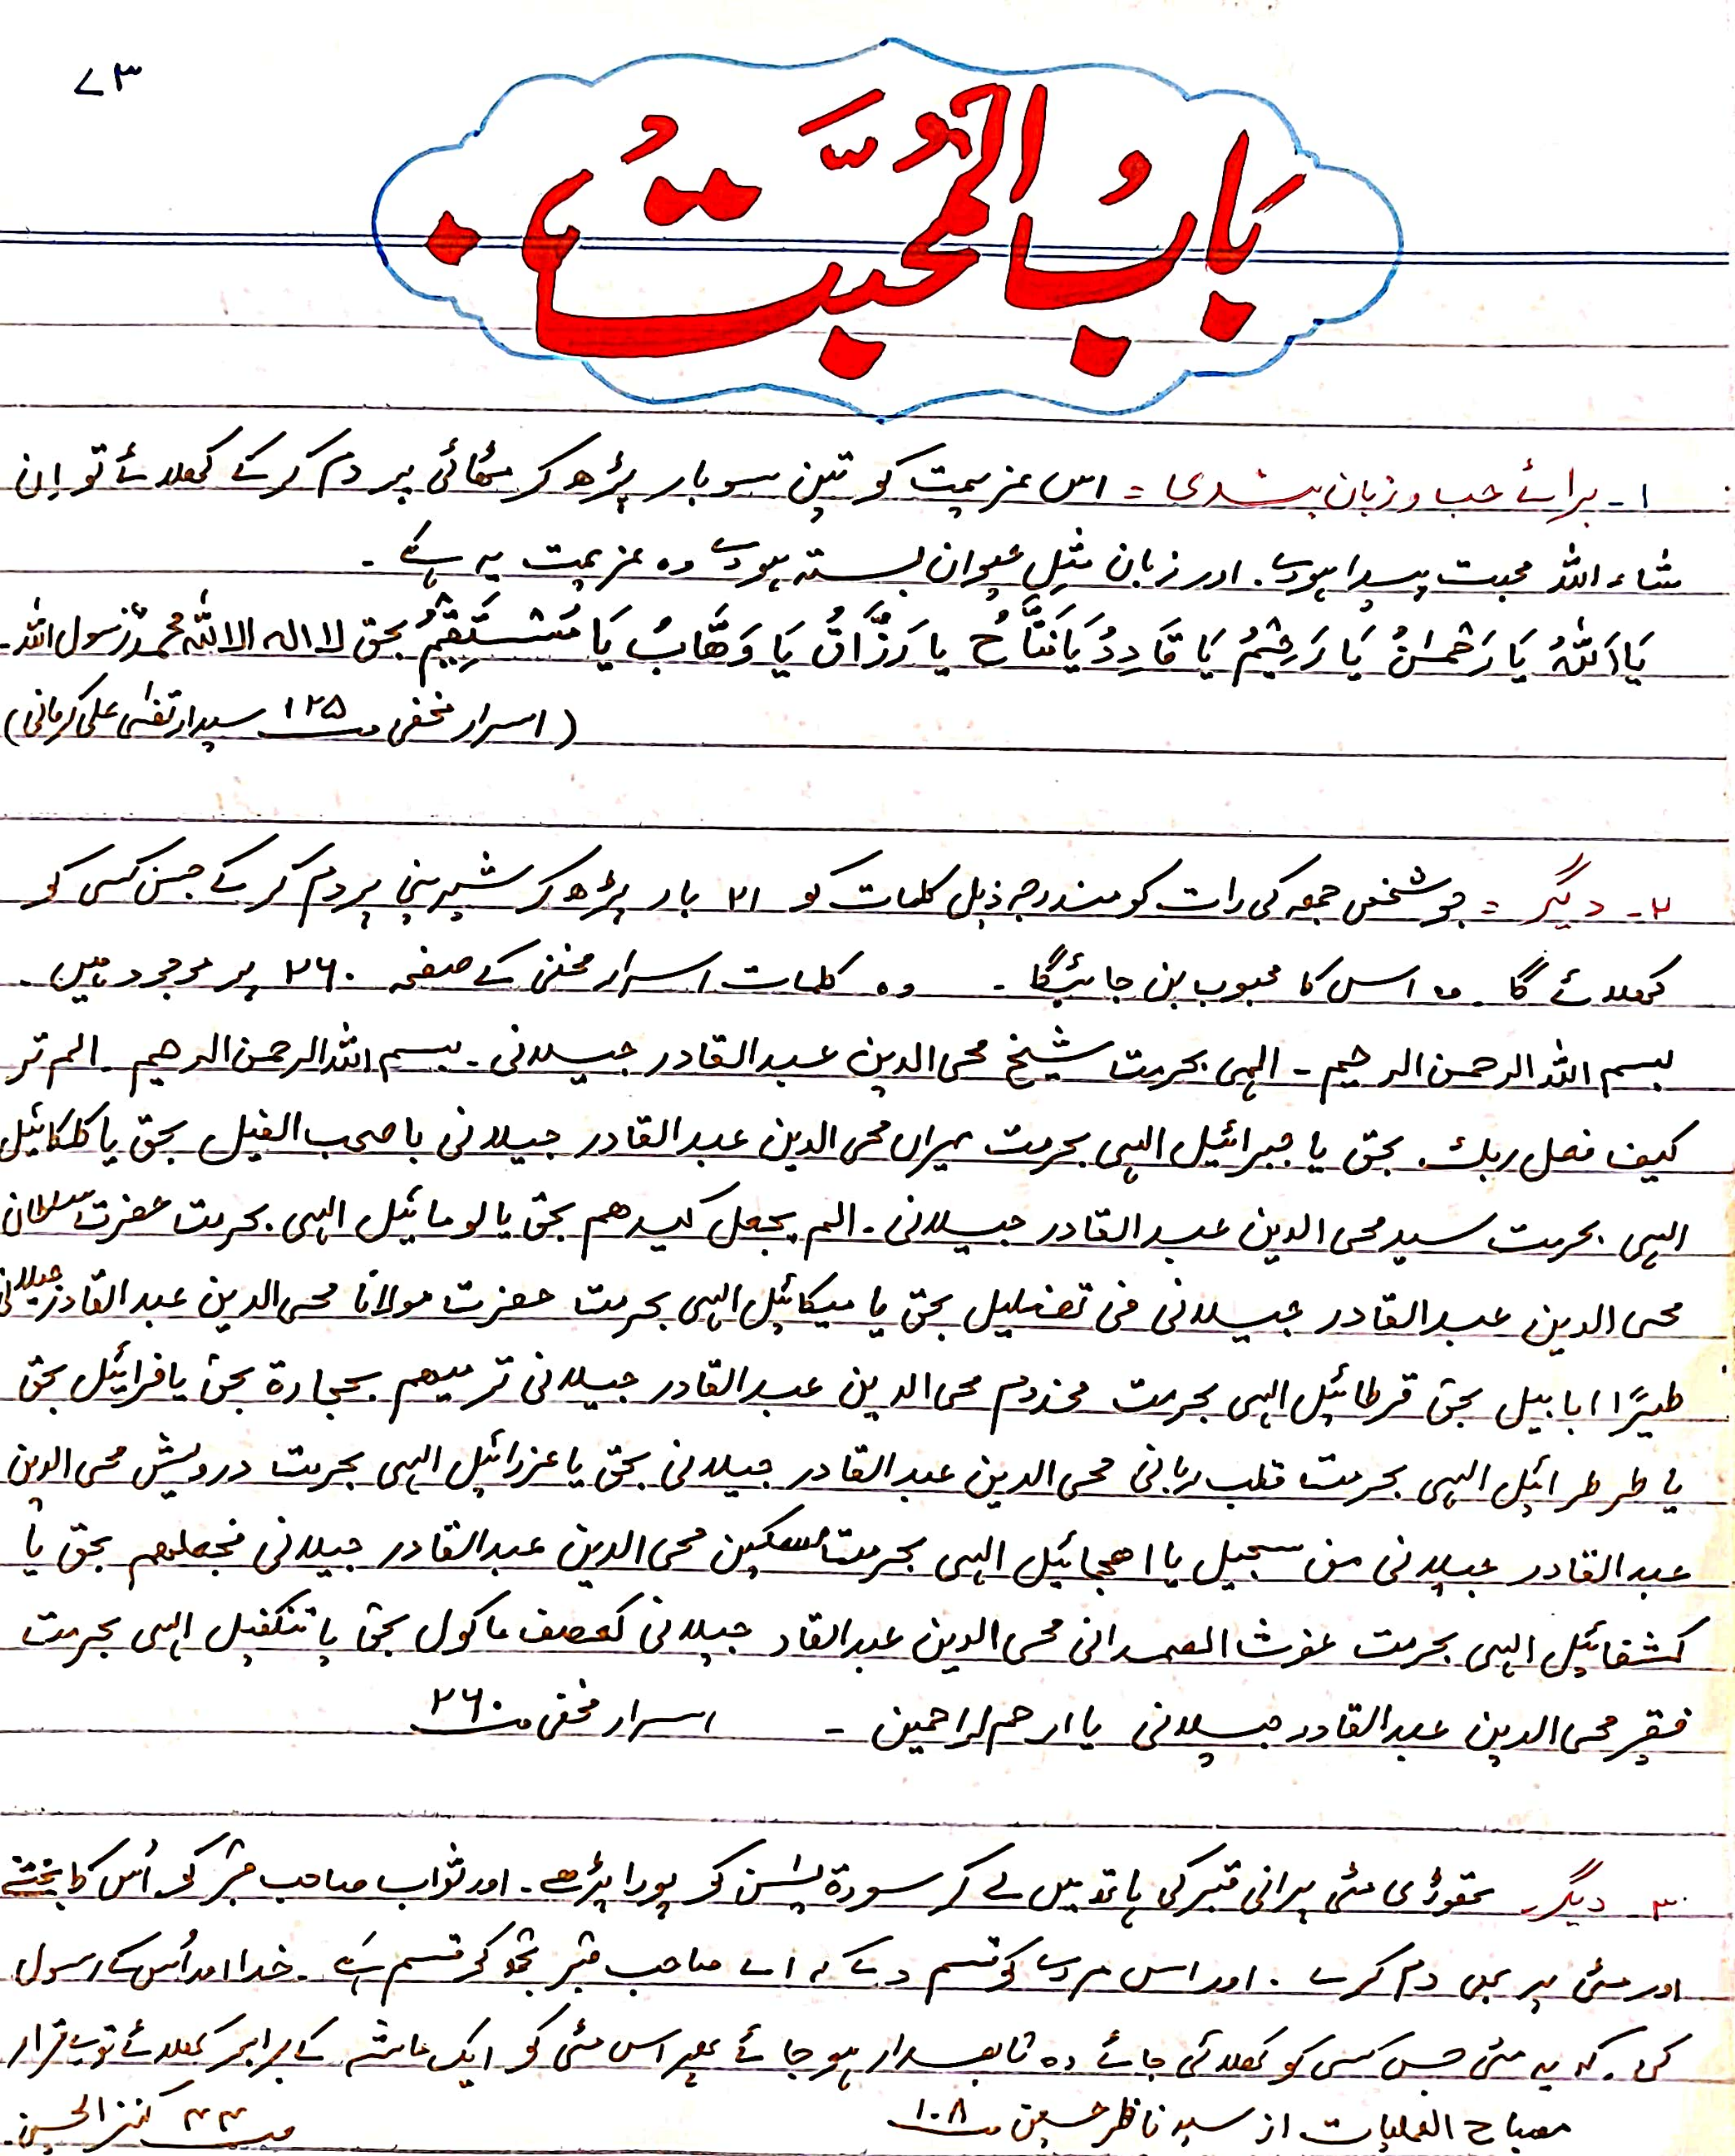 ۷۳
بَابُ الْمُحَبَّتُ
۱۔ برائے حب و زبان بندی = اس عزیمت کو تین سو بار پڑھ کر مٹھائی پر دم کر کے کھلائے تو ان
شاء اللہ محبت پیدا ہووے۔ اور زبان مثلِ حیوان بستہ ہووے وہ عزیمت یہ ہے ۔
یَا اَللّٰہُ یَا رَحْمٰنُ یَا رَحِیْمُ یَا قَادِرُ یَا فَتَّاحُ یا رَزَّاقُ یَا وَھَّابُ یَا مُسْتَقِیْمُ بحق لا الہ الا اللہ محمد رسول اللہ۔
(اسرار مخفی صـ ۱۲۵ سید ارتضٰی علی کرمانی)
۲۔ دیگر = جو شخص جمعہ کی رات کو مندرجہ ذیل کلمات کو ۲۱ بار پڑھ کر شیرینی پر دم کر کے جس کسی کو
کھلائے گا۔ وہ اس کا محبوب بن جائیگا ۔ وہ کلمات اسرار مخفی کے صفحہ ۲۶۰ پر موجود ہیں ۔
بسم اللہ الرحمن الرحیم ۔ الہی بحرمت شیخ محی الدین عبدالقادر جیلانی ۔ بسم اللہ الرحمن الرحیم ۔ الم تر
کیف فعل ربك۔ بحق یا جبرائیل الہی بحرمت میراں محی الدین عبدالقادر جیلانی باصحب الفیل بحق یا کلکائیل
الہی بحرمت سید محی الدین عبدالقادر جیلانی ۔ الم یجعل کیدھم بحق یا لومائیل الہی بحرمت حضرت سلطان
محی الدین عبدالقادر جیلانی فی تضلیل بحق یا میکائیل الہی بحرمت حضرت مولانا محی الدین عبدالقادر جیلانی
طیرًا ابابیل بحق قرطائیل الہی بحرمت مخدوم محی الدین عبدالقادر جیلانی ترمیھم بحجارۃ بحق یا فرائیل بحق
یا طرطرائیل الہی بحرمت قلب ربانی محی الدین عبدالقادر جیلانی بحق یا عزرائیل الہی بحرمت درویش محی الدین
عبدالقادر جیلانی من سجیل یا اھجائیل الہی بحرمت مسکین محی الدین عبدالقادر جیلانی فجعلھم بحق یا
کشفائیل الہی بحرمت غوث الصمدانی محی الدین عبدالقاد جیلانی کعصف ماکول بحق یا تنکفیل الہی بحرمت
فقیر محی الدین عبدالقادر جیلانی یا ارحم الراحمین ۔ اسرار مخفی صـ ۲۶۰
۳۔ دیگر۔ تھوڑی مٹی پرانی قبر کی ہاتھ میں لے کر سورۃ یٰسٓن کو پورا پڑھے۔ اور ثواب صاحب قبر کو اُس کا بخشے
اور مٹی پر بھی دم کرے ۔ اور اس مردے کو قسم دے کہ اے صاحب قبر تجھ کو قسم ہے ۔ خدا اور اُس کے رسول
کی ۔ کہ یہ مٹی جس کسی کو کھلائی جائے وہ تابعدار ہو جائے پھر اس مٹی کو ایک ماشہ کے برابر کھلائے تو بے قرار
مصباح العملیات از سید ناظر حسین صـ ۱۰۸ صـ ۴۴ کنز الحسین